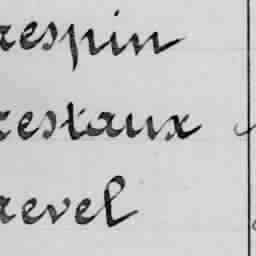 respin
restaux
revel